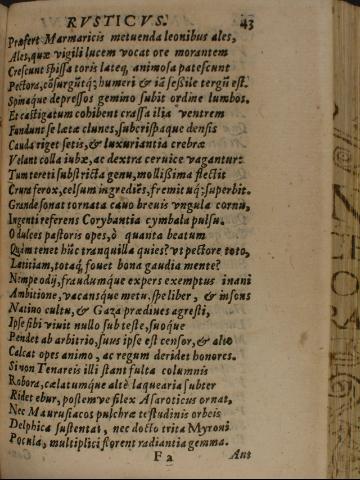 RVSTICVS. 43
Præfert Marmaricis metuenda leonibus ales,
Ales, quæ vigili lucem vocat ore morantem
Crescunt spissa toris lateq, animosa patescunt
Pectora, cõsurgũtq; humeri & iã sessile tergũ est.
Spinaque depressos gemino subit ordine lumbos.
Et castigatum cohibent crassa ilia ventrem
Fundunt se lætæ clunes, subcrispaque densis
Cauda riget setis, & luxuriantia crebræ
Velant colla iubæ, ac dextra ceruice vagantur:
Tum tereti substricta genu, mollissima flectit
Crura ferox, celsum ingrediẽs, fremitúq; superbit.
Grande sonat tornata cauo breuis vngula cornu,
Ingenti referens Corybantia cymbala pulsu.
O dulces pastoris opes, ò quanta beatum
Quim tenet hũc tranquilla quies? vt pectore toto,
Lætitiam, totaq́, fouet bona gaudia mente?
Nempe odij, fraudumque expers exemptus inani
Ambitione, vacansque metu, spe liber, & insons
Natiuo cultu, & Gaza prædiues agresti,
Ipse sibi viuit nullo sub teste, suoque
Pendet ab arbitrio, suus ipse est censor, & alto
Calcat opes animo, ac regum deridet honores.
Si non Tenareis illi stant fulta columnis
Robora, cælatumque altè laquearia subter
Ridet ebur, postem ve silex Asaroticus ornat,
Nec Maurusiacos pulchræ testudinis orbeis
Delphica sustentat, nec docto trita Myroni
Pocula, multiplici florent radiantia gemma.
F 2 Aut